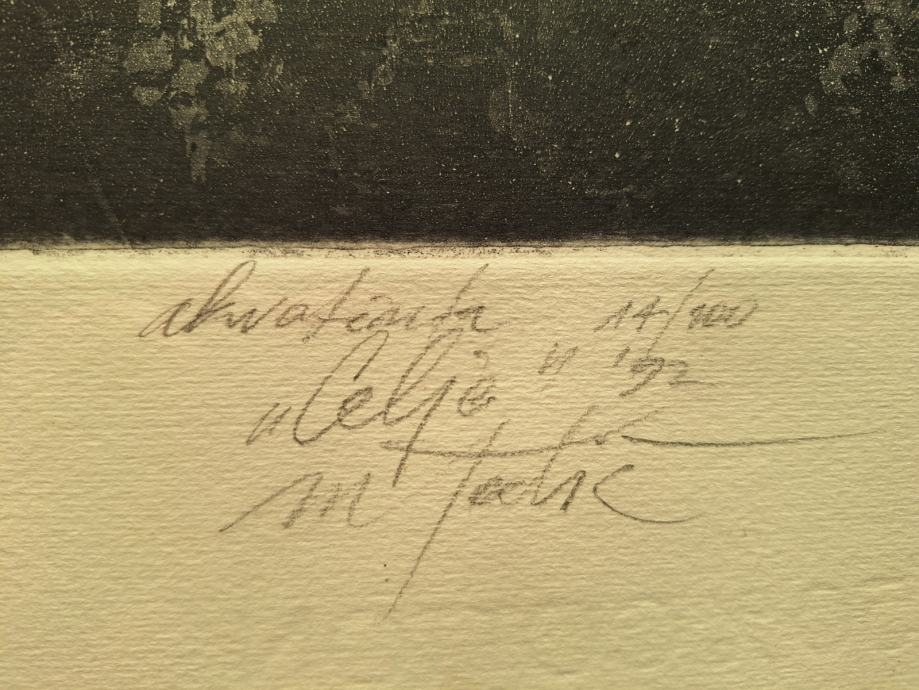 akvatinta 14/100
"Celje" '92
M